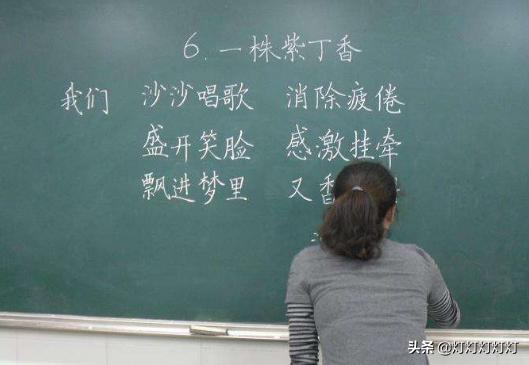 6. 一株紫丁香
我们 沙沙唱歌 消除疲倦
盛开笑脸 感激挂牵
飘进梦里 又香
头条 @灯灯灯灯灯